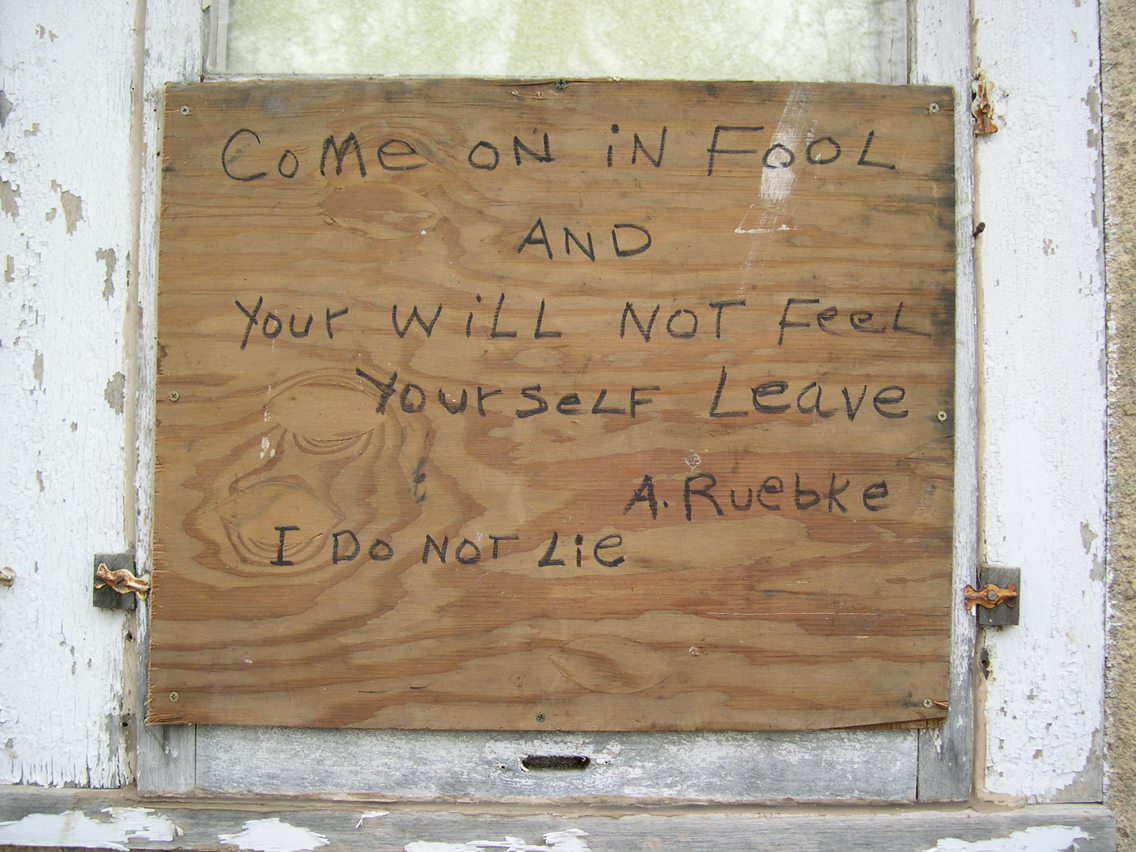 COMe ON iN FOOL
AND
Your WiLL NOT FeeL
YourseLF Leave
A. Ruebke
I DO NOT Lie